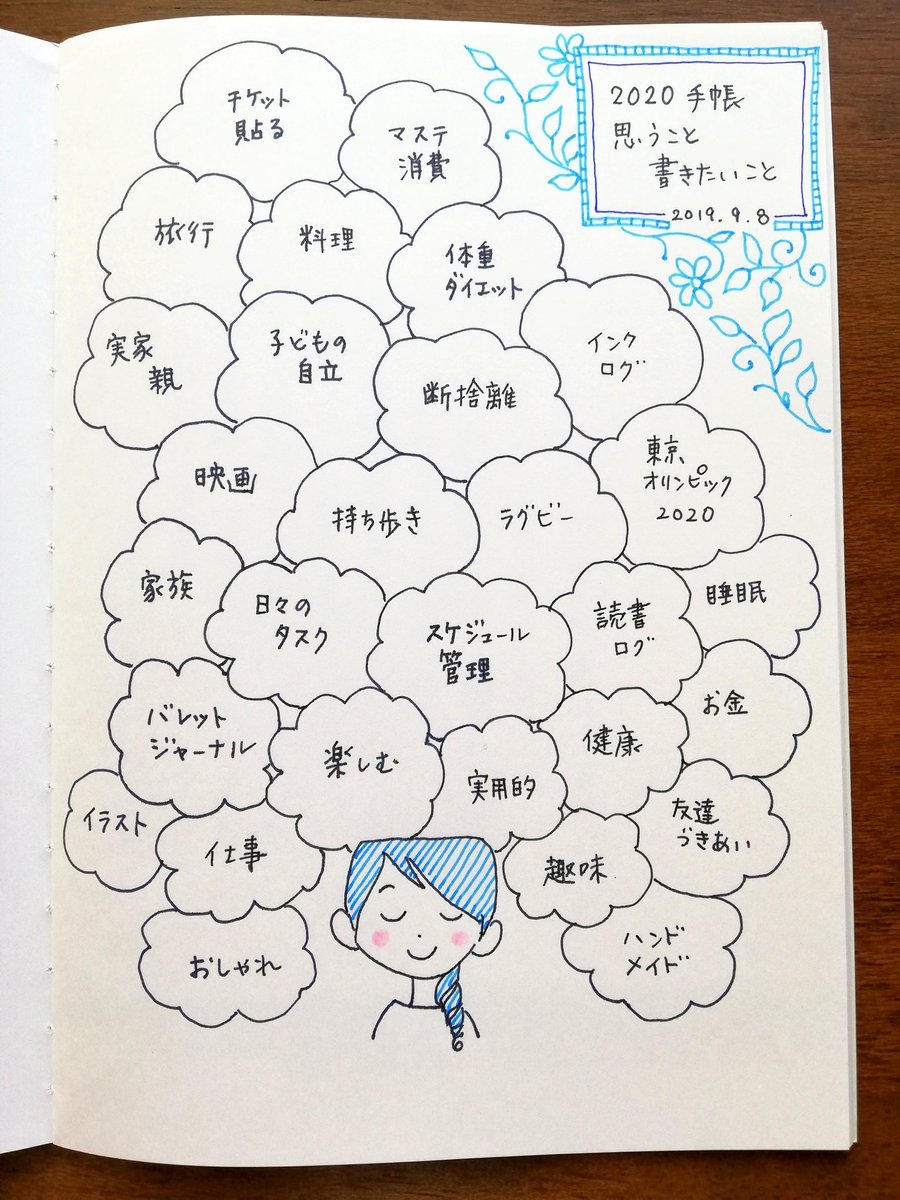 2020 手帳
思うこと
書きたいこと
2019.9.8
チケット
貼る
マステ
消費
旅行
料理
体重
ダイエット
実家
親
子どもの
自立
断捨離
インク
ログ
映画
持ち歩き
ラグビー
東京
オリンピック
2020
家族
日々の
タスク
スケジュール
管理
読書
ログ
睡眠
バレット
ジャーナル
楽しむ
実用的
健康
お金
イラスト
仕事
趣味
友達
づきあい
おしゃれ
ハンド
メイド